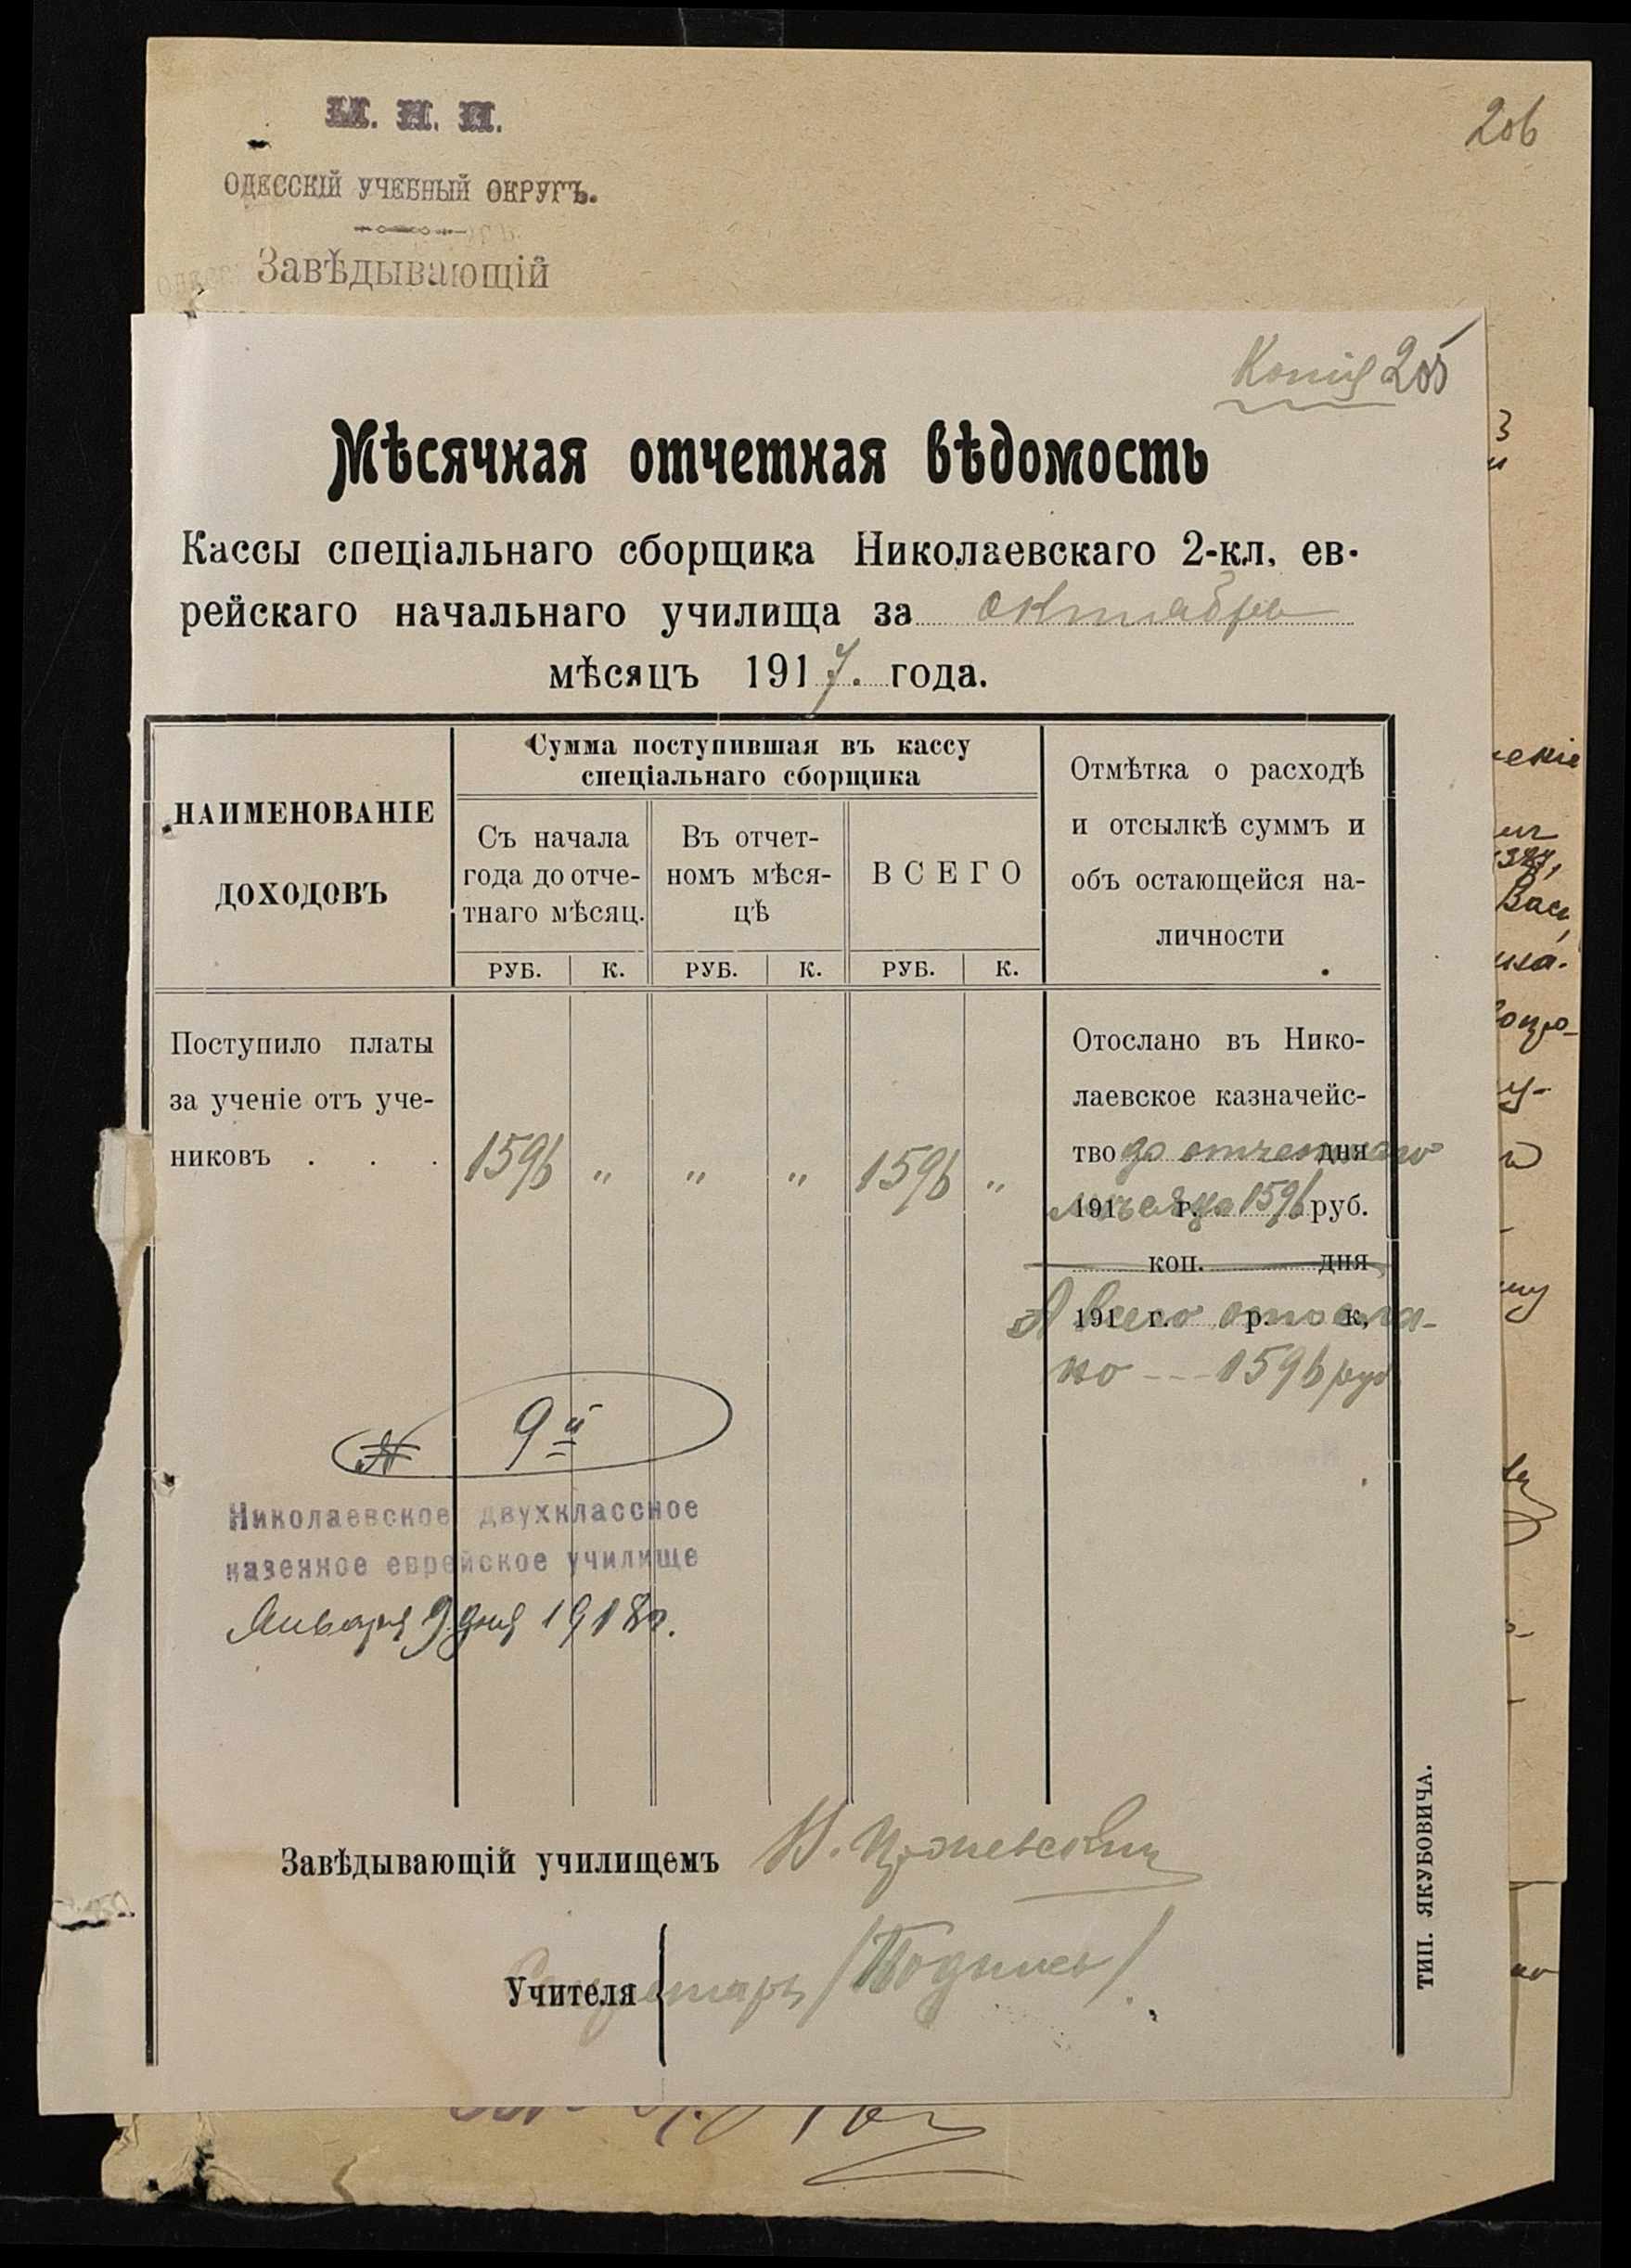 М. Н. П.
206
ОДЕССКІЙ УЧЕБНЫЙ ОКРУГЪ.
Завѣдывающій
Копія 205
Мѣсячная отчетная вѣдомость
Кассы спеціальнаго сборщика Николаевскаго 2-кл. ев-
рейскаго начальнаго училища за октябрь
мѣсяцъ 1917. года.
НАИМЕНОВАНІЕ
ДОХОДОВЪ
Сумма поступившая въ кассу
спеціальнаго сборщика
Съ начала
года до отче-
тнаго мѣсяц.
Въ отчет-
номъ мѣся-
цѣ
ВСЕГО
РУБ. К. РУБ. К. РУБ. К.
Отмѣтка о расходѣ
и отсылкѣ суммъ и
объ остающейся на-
личности
Поступило платы
за ученіе отъ уче-
никовъ . . .
1596 " " " 1596 "
Отослано въ Нико-
лаевское казначейс-
тво до отчетнаго дня
191 г. мѣсяца 1596 руб.
коп. дня
191 г. р. к.
А всего отосла-
но --- 1596 руб
№ 9й
Николаевское двухклассное
казенное еврейское училище
Января 9 дня 1918 г.
Завѣдывающій училищемъ
Учителя
Секретарь /Подпись/
ТИП. ЯКУБОВИЧА.